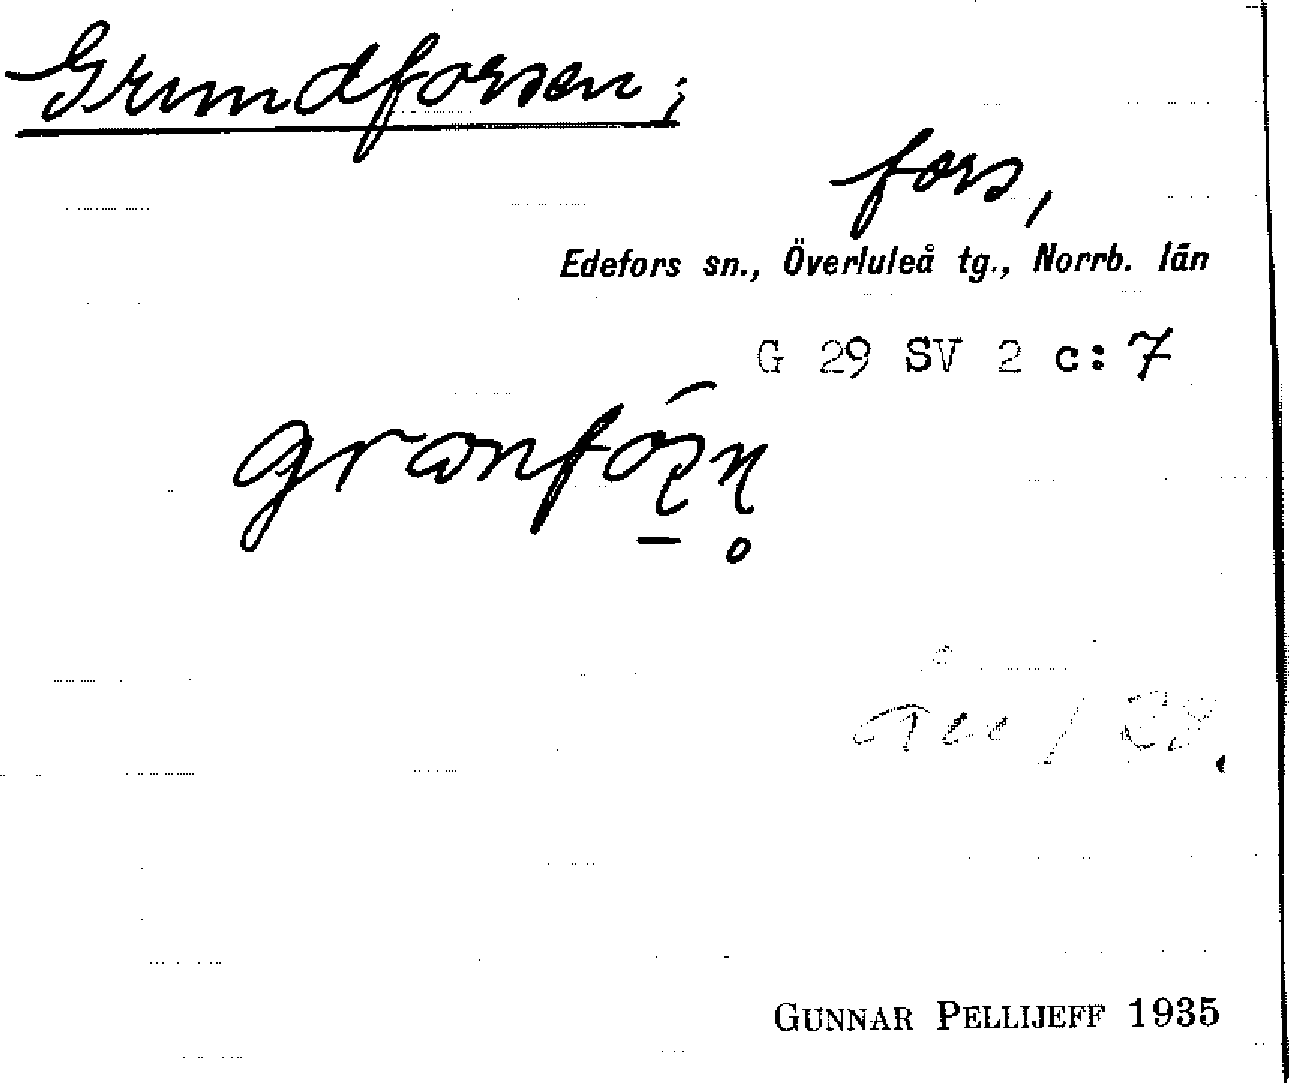 Grundforsen;
fors,
Edefors sn., Överluleå tg., Norrb. län
G 29 SV 2 c: 7
GUNNAR PELLIJEFF 1935